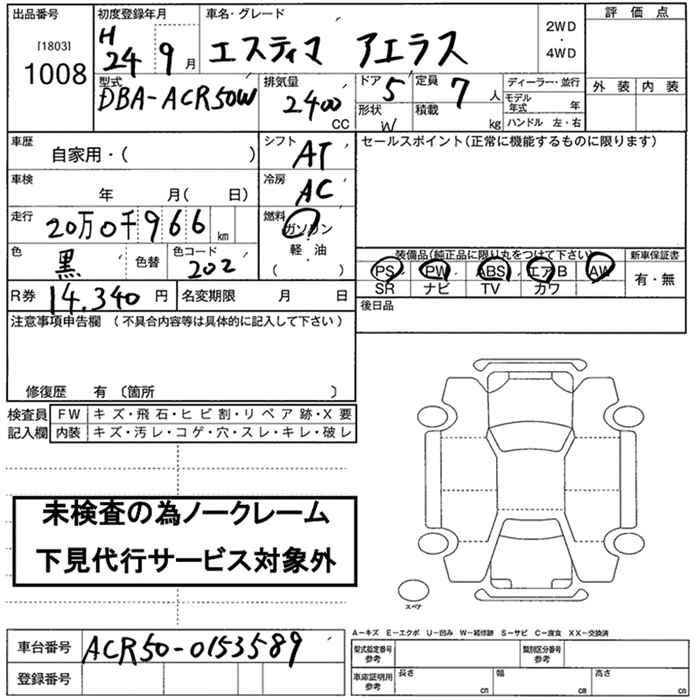 出品番号 初度登録年月 車名・グレード 評価点
[1803] 1008 H 24 9月 エスティマ アエラス 2WD・4WD
型式 排気量 ドア 定員 ディーラー・並行 外装 内装
DBA-ACR50W 2400 CC 5 7人 モデル年式 年
形状 W 積載 kg ハンドル 左・右
車歴 自家用・( ) シフト AT セールスポイント(正常に機能するものに限ります)
車検 年 月( 日) 冷房 AC
走行 20万0千966km 燃料 ガソリン
軽・油
( )
色 黒 色替 色コード 202 装備品(純正品に限り丸をつけて下さい) 新車保証書
PS PW ABS エアB AW 有・無
SR ナビ TV カワ
R券 14.340円 名変期限 月 日 後日品
注意事項申告欄 (不具合内容等は具体的に記入して下さい)
修復歴 有 〔箇所 〕
検査員 FW キズ・飛石・ヒビ割・リペア跡・X要
記入欄 内装 キズ・汚レ・コゲ・穴・スレ・キレ・破レ
未検査の為ノークレーム
下見代行サービス対象外
スペア
A-キズ E-エクボ U-凹み W-補修跡 S-サビ C-腐食 XX-交換済
車台番号 ACR50-0153589 型式指定番号 参考 類別区分番号 参考
登録番号 車庫証明用 参考 長さ cm 幅 cm 高さ cm